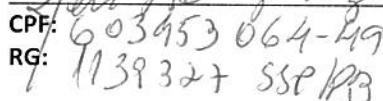 CPF: 603953064-49
RG: 1139327 SSP/PB